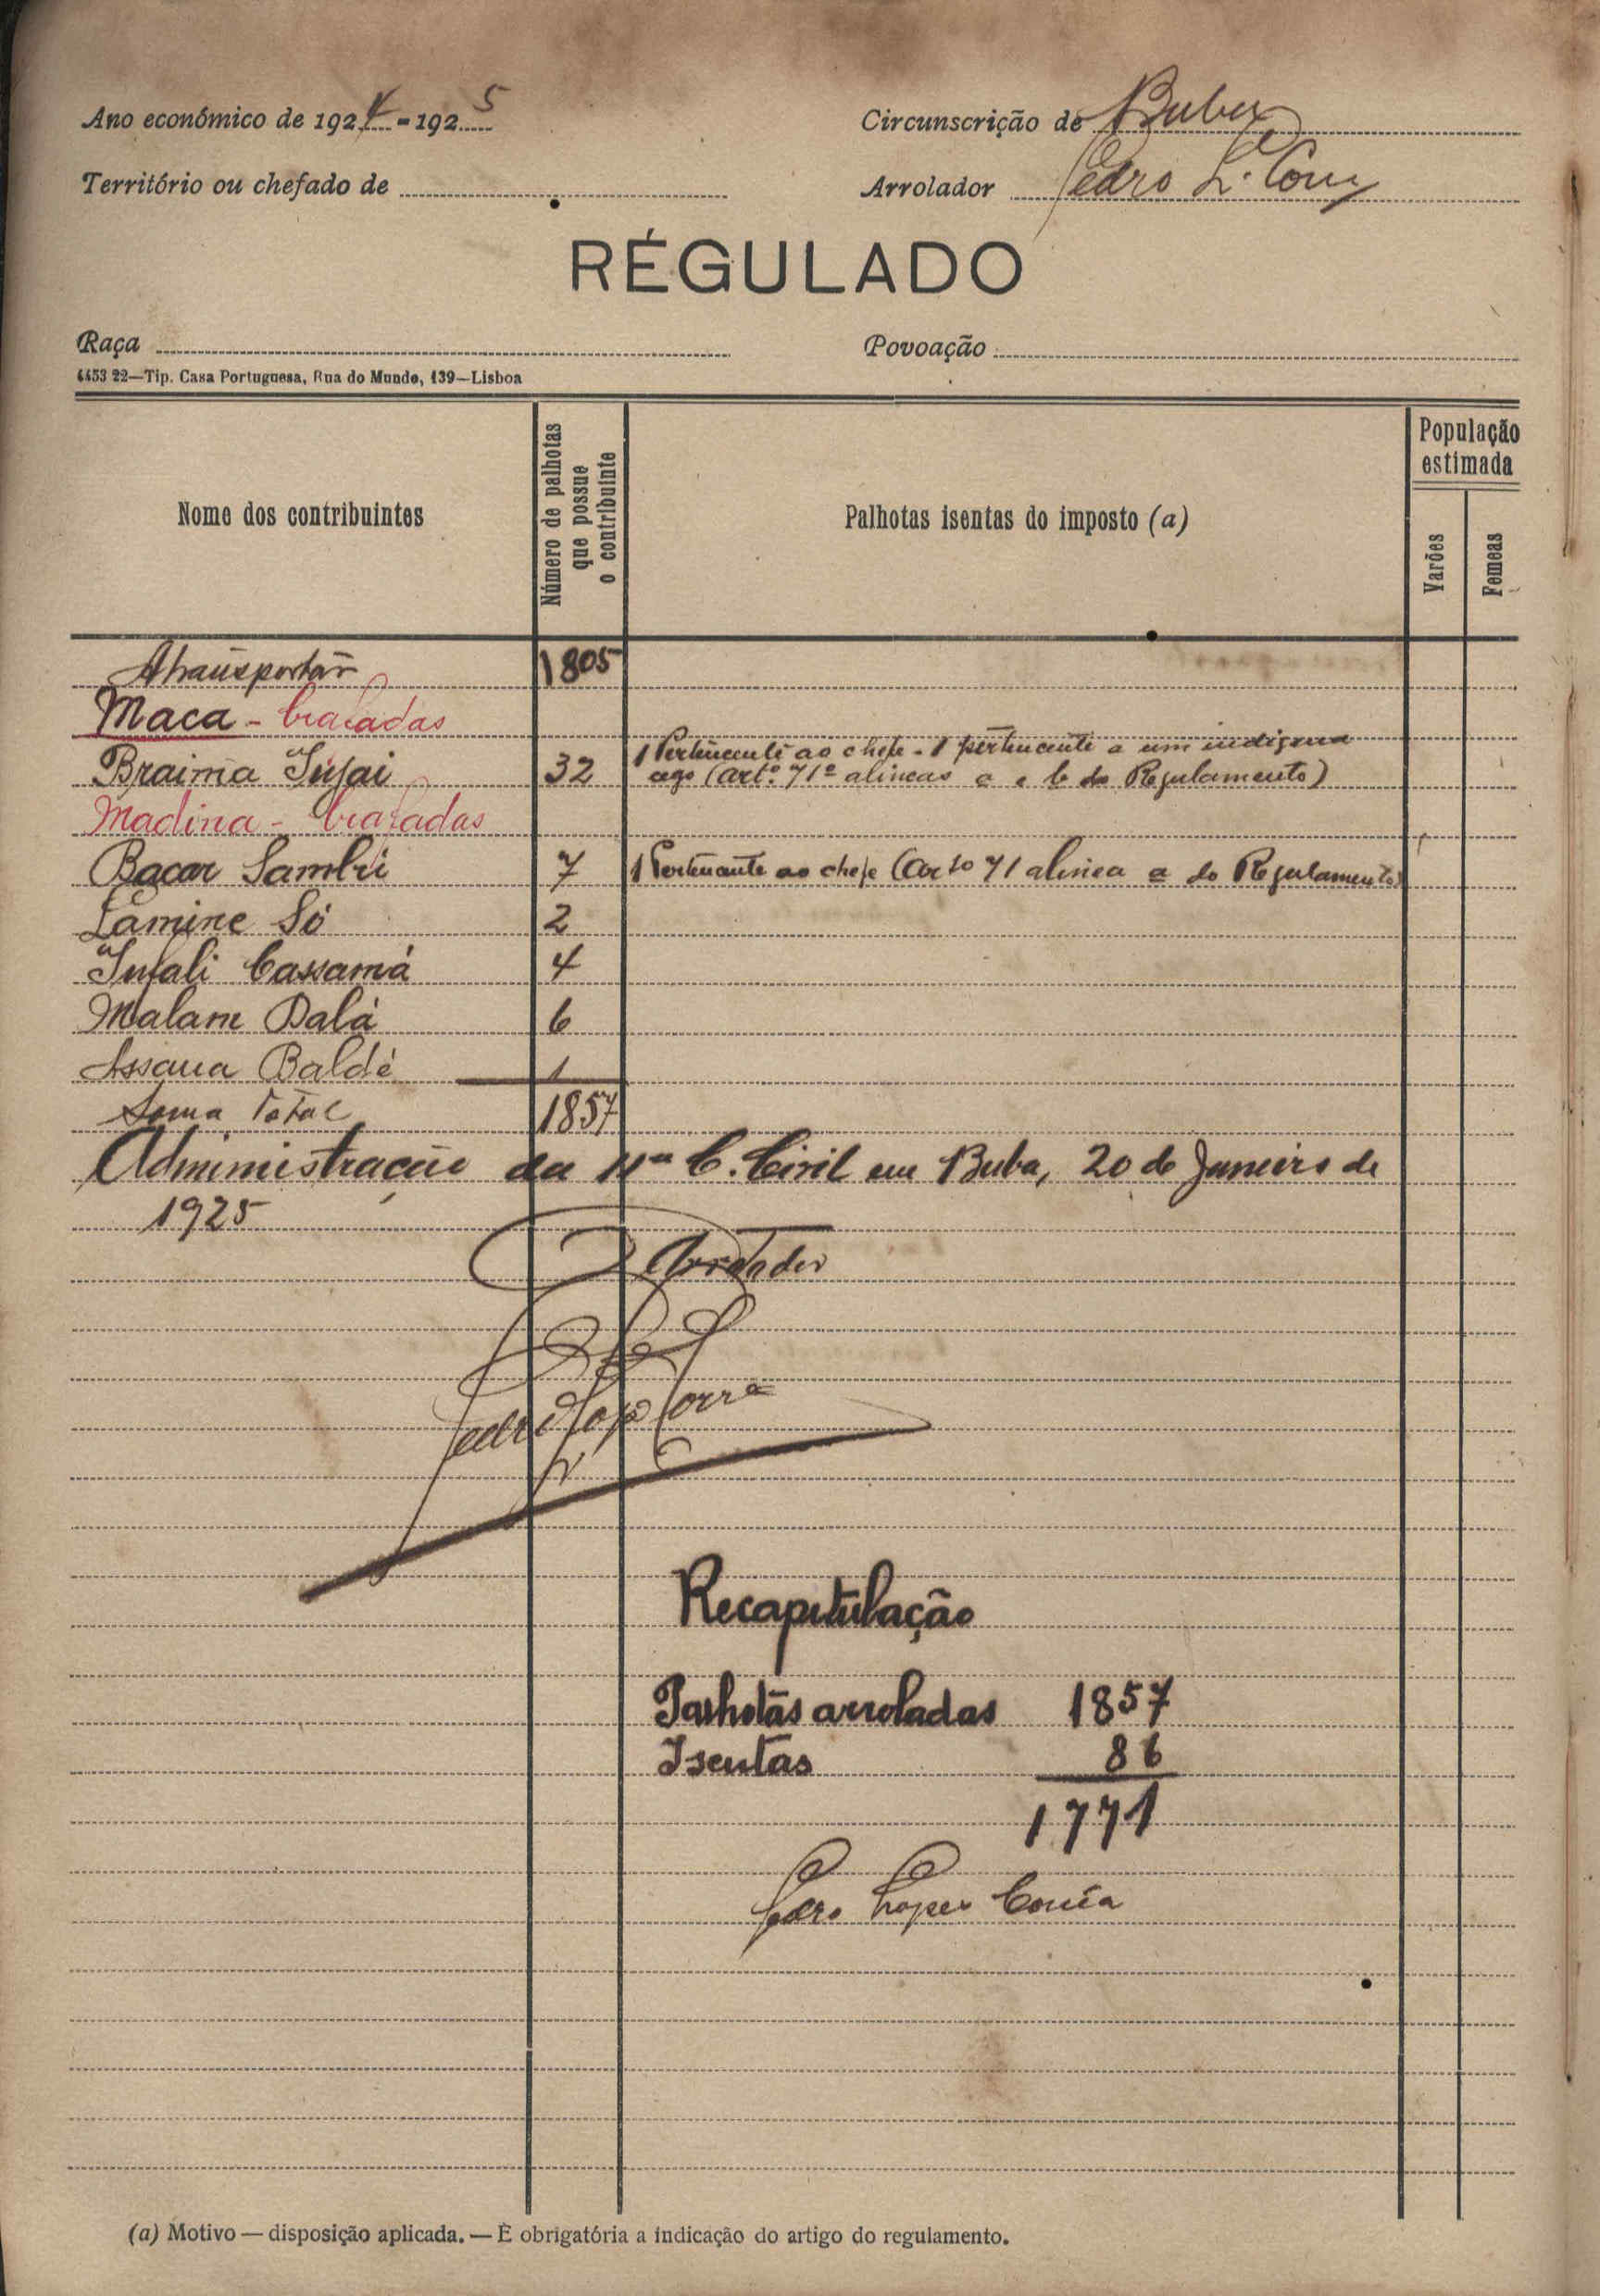 Ano económico de 1924-1925
Circunscrição de Buba
Território ou chefado de
Arrolador Pedro L. Corr
RÉGULADO
Raça
Povoação
4453 22—Tip. Casa Portuguesa, Rua do Mundo, 139—Lisboa
Nome dos contribuintes
Número de palhotas
que possue
o contribuinte
Palhotas isentas do imposto (a)
População
estimada
Varões
Femeas
A transportar 1805
Maca - biafadas
1 Pertencente ao chefe - 1 pertencente a um indigena
Braima Injai 32 cego (artº. 71º alineas a e b do Regulamento)
Madina - biafadas
Bacar Sambú 7 1 Pertencente ao chefe (Artº 71 alinea a do Regulamento)
Lamine Só 2
Infali Cassamá 4
Malam Dalá 6
Assana Baldé 1
Soma total 1857
Administração da 11ª C. Civil em Buba, 20 de Janeiro de
1925
O Arrolador
Pedro Lopes Corrêa
Recapitulação
Palhotas arroladas 1857
Isentas 86
1771
Pedro Lopes Corrêa
(a) Motivo — disposição aplicada. — É obrigatória a indicação do artigo do regulamento.